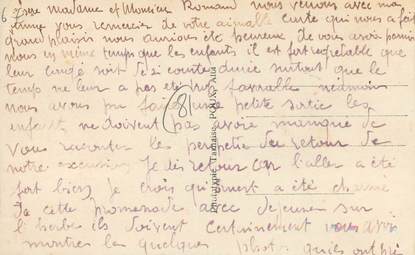 6 Chère Madame et Monsieur Romand nous venons avec ma
femme vous remercier de votre aimable carte qui nous a fait
grand plaisir nous aurions été heureux de vous avoir parmi
nous en même temps que les enfants, il est fort regretable que
leur congé soit de si courte durée surtout que le
temps ne leur a pas été très favorable neanmoins
nous avons pu faire une petite sortie les
enfants ne doivent pas avoir manqué de
vous raconter les du retour de
notre excursion Je dis retour car l'aller a été
fort bien, Je crois qu'ils ont été
de cette promenade avec dejeuner sur
l'herbe ils doivent certainement vous avoir
montrer les quelques photos qu'ils ont
(8)
Phototypie Tarnaise POUX, Albi